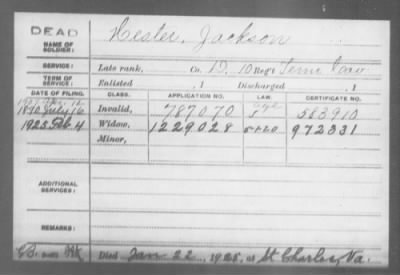 DEAD
NAME OF SOLDIER: Hester, Jackson
SERVICE: Late rank, Co. D, 10 Reg't Tenn Cav
TERM OF SERVICE: Enlisted , 1 Discharged , 1
DATE OF FILING. CLASS. APPLICATION NO. LAW. CERTIFICATE NO.
1890 July 16 Invalid, 787070 583910
1925 Feb 4 Widow, 1229028 972331
Minor,
ADDITIONAL SERVICES:
REMARKS:
Died Jan 22, 1925, at St Charles, Va.